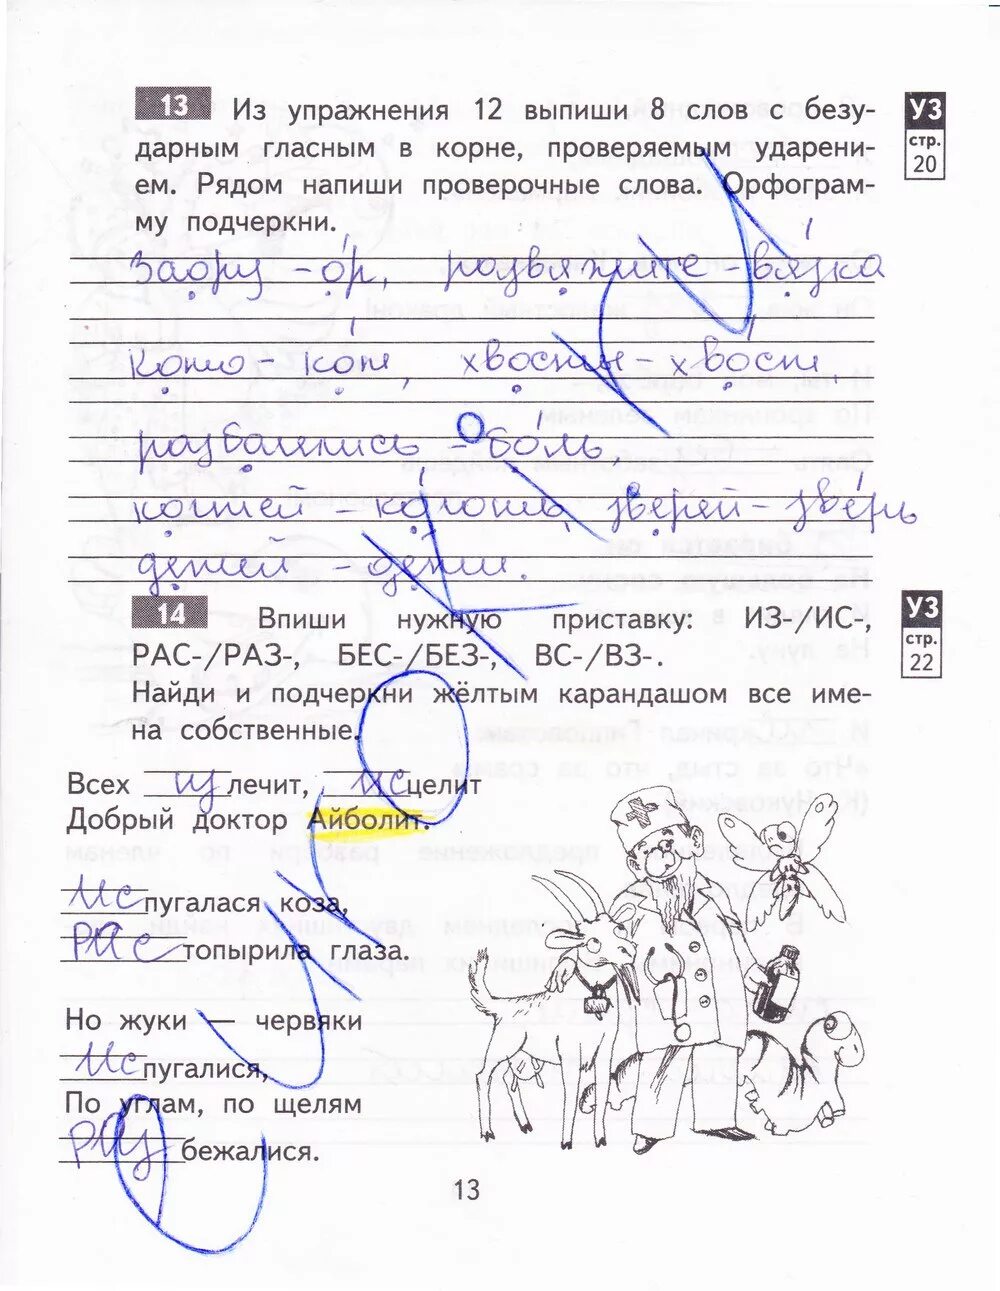 13 Из упражнения 12 выпиши 8 слов с безу-
дарным гласным в корне, проверяемым ударени-
ем. Рядом напиши проверочные слова. Орфограм-
му подчеркни.
УЗ
стр.
20
Заору - о́р, развяжите - вя́зка
кото - ко́т, хвосты - хво́ст
разболелись - бо́ль
когтей - ко́готь, зверей - зве́рь
детей - дети.
14 Впиши нужную приставку: ИЗ-/ИС-,
РАС-/РАЗ-, БЕС-/БЕЗ-, ВС-/ВЗ-.
Найди и подчеркни жёлтым карандашом все име-
на собственные.
УЗ
стр.
22
Всех излечит, исцелит
Добрый доктор Айболит.
Испугалася коза,
растопырила глаза.
Но жуки — червяки
Испугалися,
По углам, по щелям
разбежалися.
13